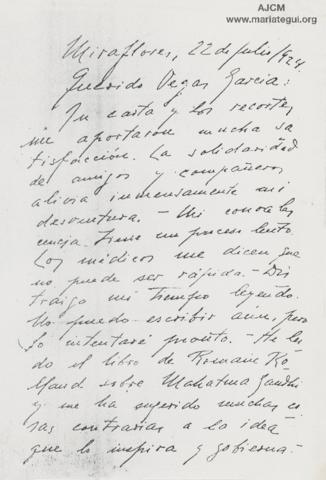 AJCM
www.mariategui.org
Miraflores, 22 de julio/924
Querido Vegas García:
Tu carta y los recortes
me aportaron mucha sa
tisfacción. La solidaridad
de amigos y compañeros
alivia inmensamente mi
desventura. - Mi convales
cencia tiene un proceso lento.
Los médicos me dicen que
no puede ser rápida. - Dis
traigo mi tiempo leyendo.
No puedo escribir aún, pero
lo intentaré pronto. - He leí
do el libro de Romain Ro
lland sobre Mahatma Gandhi
y me ha sugerido muchas co
sas contrarias a la idea
que lo inspira y gobierna. -